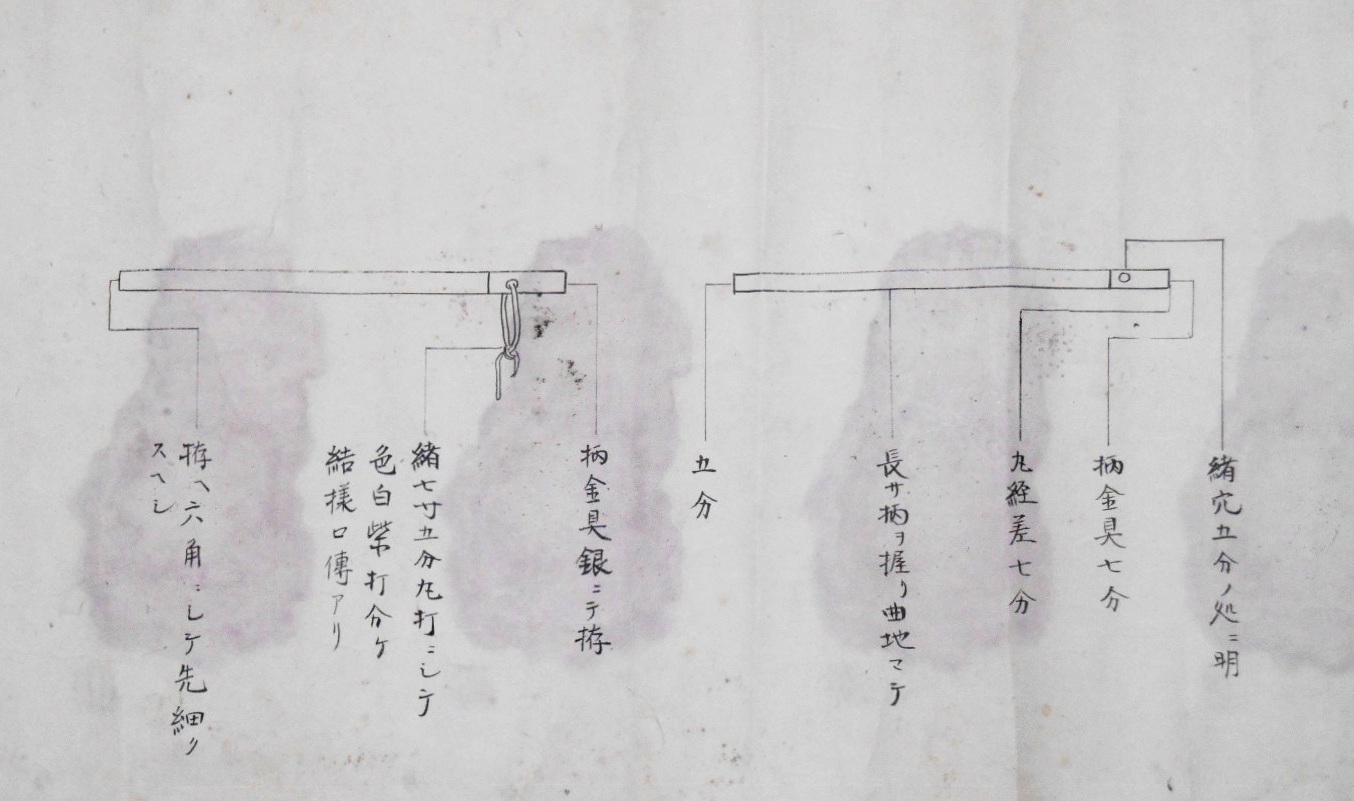 緒穴五分ノ処ニ明
柄金具七分
丸経差七分
長サ柄ヲ握リ曲地マテ
五分
柄金具銀ニテ拵
緒七寸五分丸打ニシテ
色白柴打分ケ
結様口傳アリ
拵ヘ六角ニシテ先細ク
スヘシ